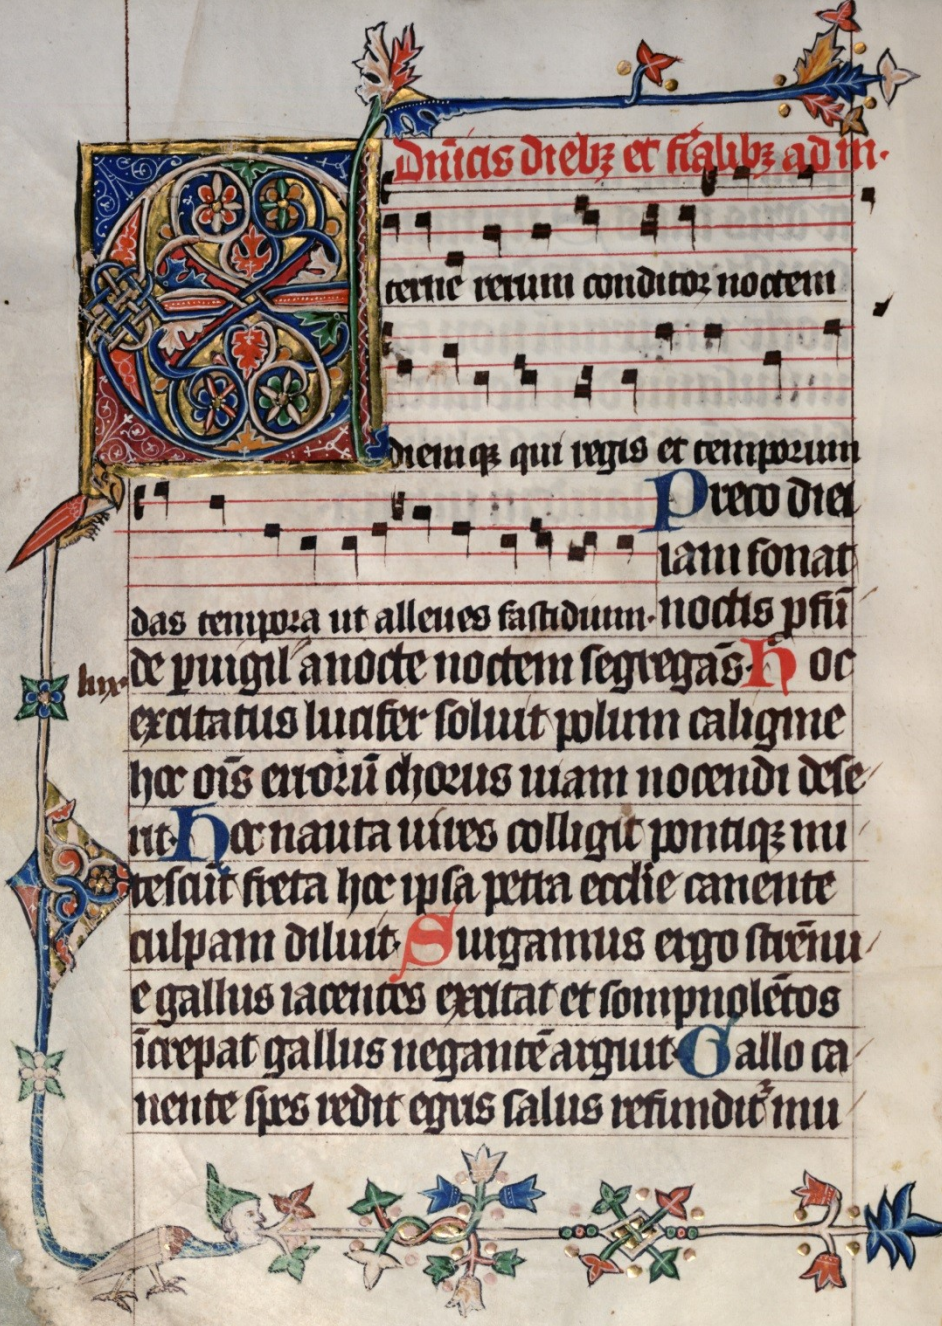 Dn̄icis diebꝫ et fīalibꝫ ad m̄.
Eterne rerum conditor noctem
diemqꝫ qui regis et temporum
das tempora ut alleues fastidium. Preco diei
iam sonat
noctis ꝓfū
lux.
de ꝑuigil anocte noctem segregās. Hoc
excitatus lucifer soluit polum caligine
hoc oīs errorū chorus uiam nocendi dese
rit. Hoc nauta uires colligit pontiqꝫ mi
tescūt freta hoc ipsa petra eccl̄ie canente
culpam diluit. Surgamus ergo strēnu
e gallus iacentes excitat et sompnolētos
īcrepat gallus negantē arguit. Gallo ca
nente spes redit egris salus refundit᷑ mu